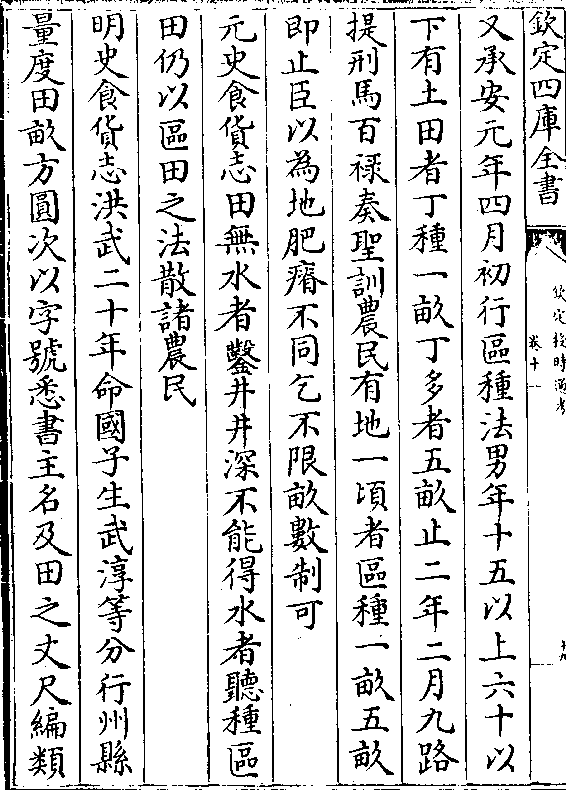 欽定四庫全書
欽定授時通考
卷十一
又承安元年四月初行區種法男年十五以上六十以
下有土田者丁種一畝丁多者五畝止二年二月九路
提刑馬百祿奏聖訓農民有地一頃者區種一畝五畝
即止臣以為地肥瘠不同乞不限畝數制可
元史食貨志田無水者鑿井井深不能得水者聽種區
田仍以區田之法散諸農民
明史食貨志洪武二十年命國子生武淳等分行州縣
量度田畝方圓次以字號悉書主名及田之丈尺編類